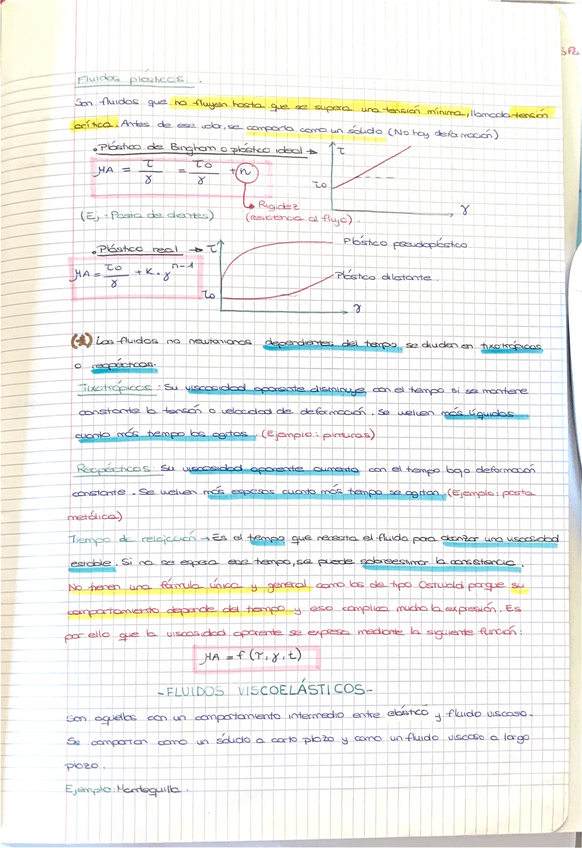 Fluidos plásticos.
Son fluidos que no fluyen hasta que se supera una tensión mínima, llamada tensión
crítica. Antes de ese valor, se comporta como un sólido (No hay deformación)
• Plástico de Bingham o plástico ideal → τ
μA = τ/γ = τo/γ + n
τo
γ
Rigidez
(Ej.- Pasta de dientes) (resistencia al flujo).
• Plástico real → τ
Plástico pseudoplástico
μA = τo/γ + K·γ^n-1
Plástico dilatante.
τo
γ
(*) Los fluidos no newtonianos dependientes del tiempo, se dividen en tixotrópicos
o reopécticos.
Tixotrópicos: Su viscosidad aparente disminuye con el tiempo si se mantiene
constante la tensión o velocidad de deformación. Se vuelven más líquidos
cuanto más tiempo los agitas. (Ejemplo: pinturas)
Reopécticos Su viscosidad aparente aumenta con el tiempo bajo deformación
constante. Se vuelven más espesos cuanto más tiempo se agitan. (Ejemplo: pasta
metálica)
Tiempo de relajación → Es el tiempo que necesita el fluido para alcanzar una viscosidad
estable. Si no se espera ese tiempo, se puede sobreestimar la consistencia.
No tienen una fórmula única y general como los de tipo Ostwald porque su
comportamiento depende del tiempo y eso complica mucho la expresión. Es
por ello que la viscosidad aparente se expresa mediante la siguiente función:
μA = f(τ, γ, t)
-FLUIDOS VISCOELÁSTICOS-
Son aquellos con un comportamiento intermedio entre elástico y fluido viscoso.
Se comportan como un sólido a corto plazo y como un fluido viscoso a largo
plazo.
Ejemplo: Mantequilla.